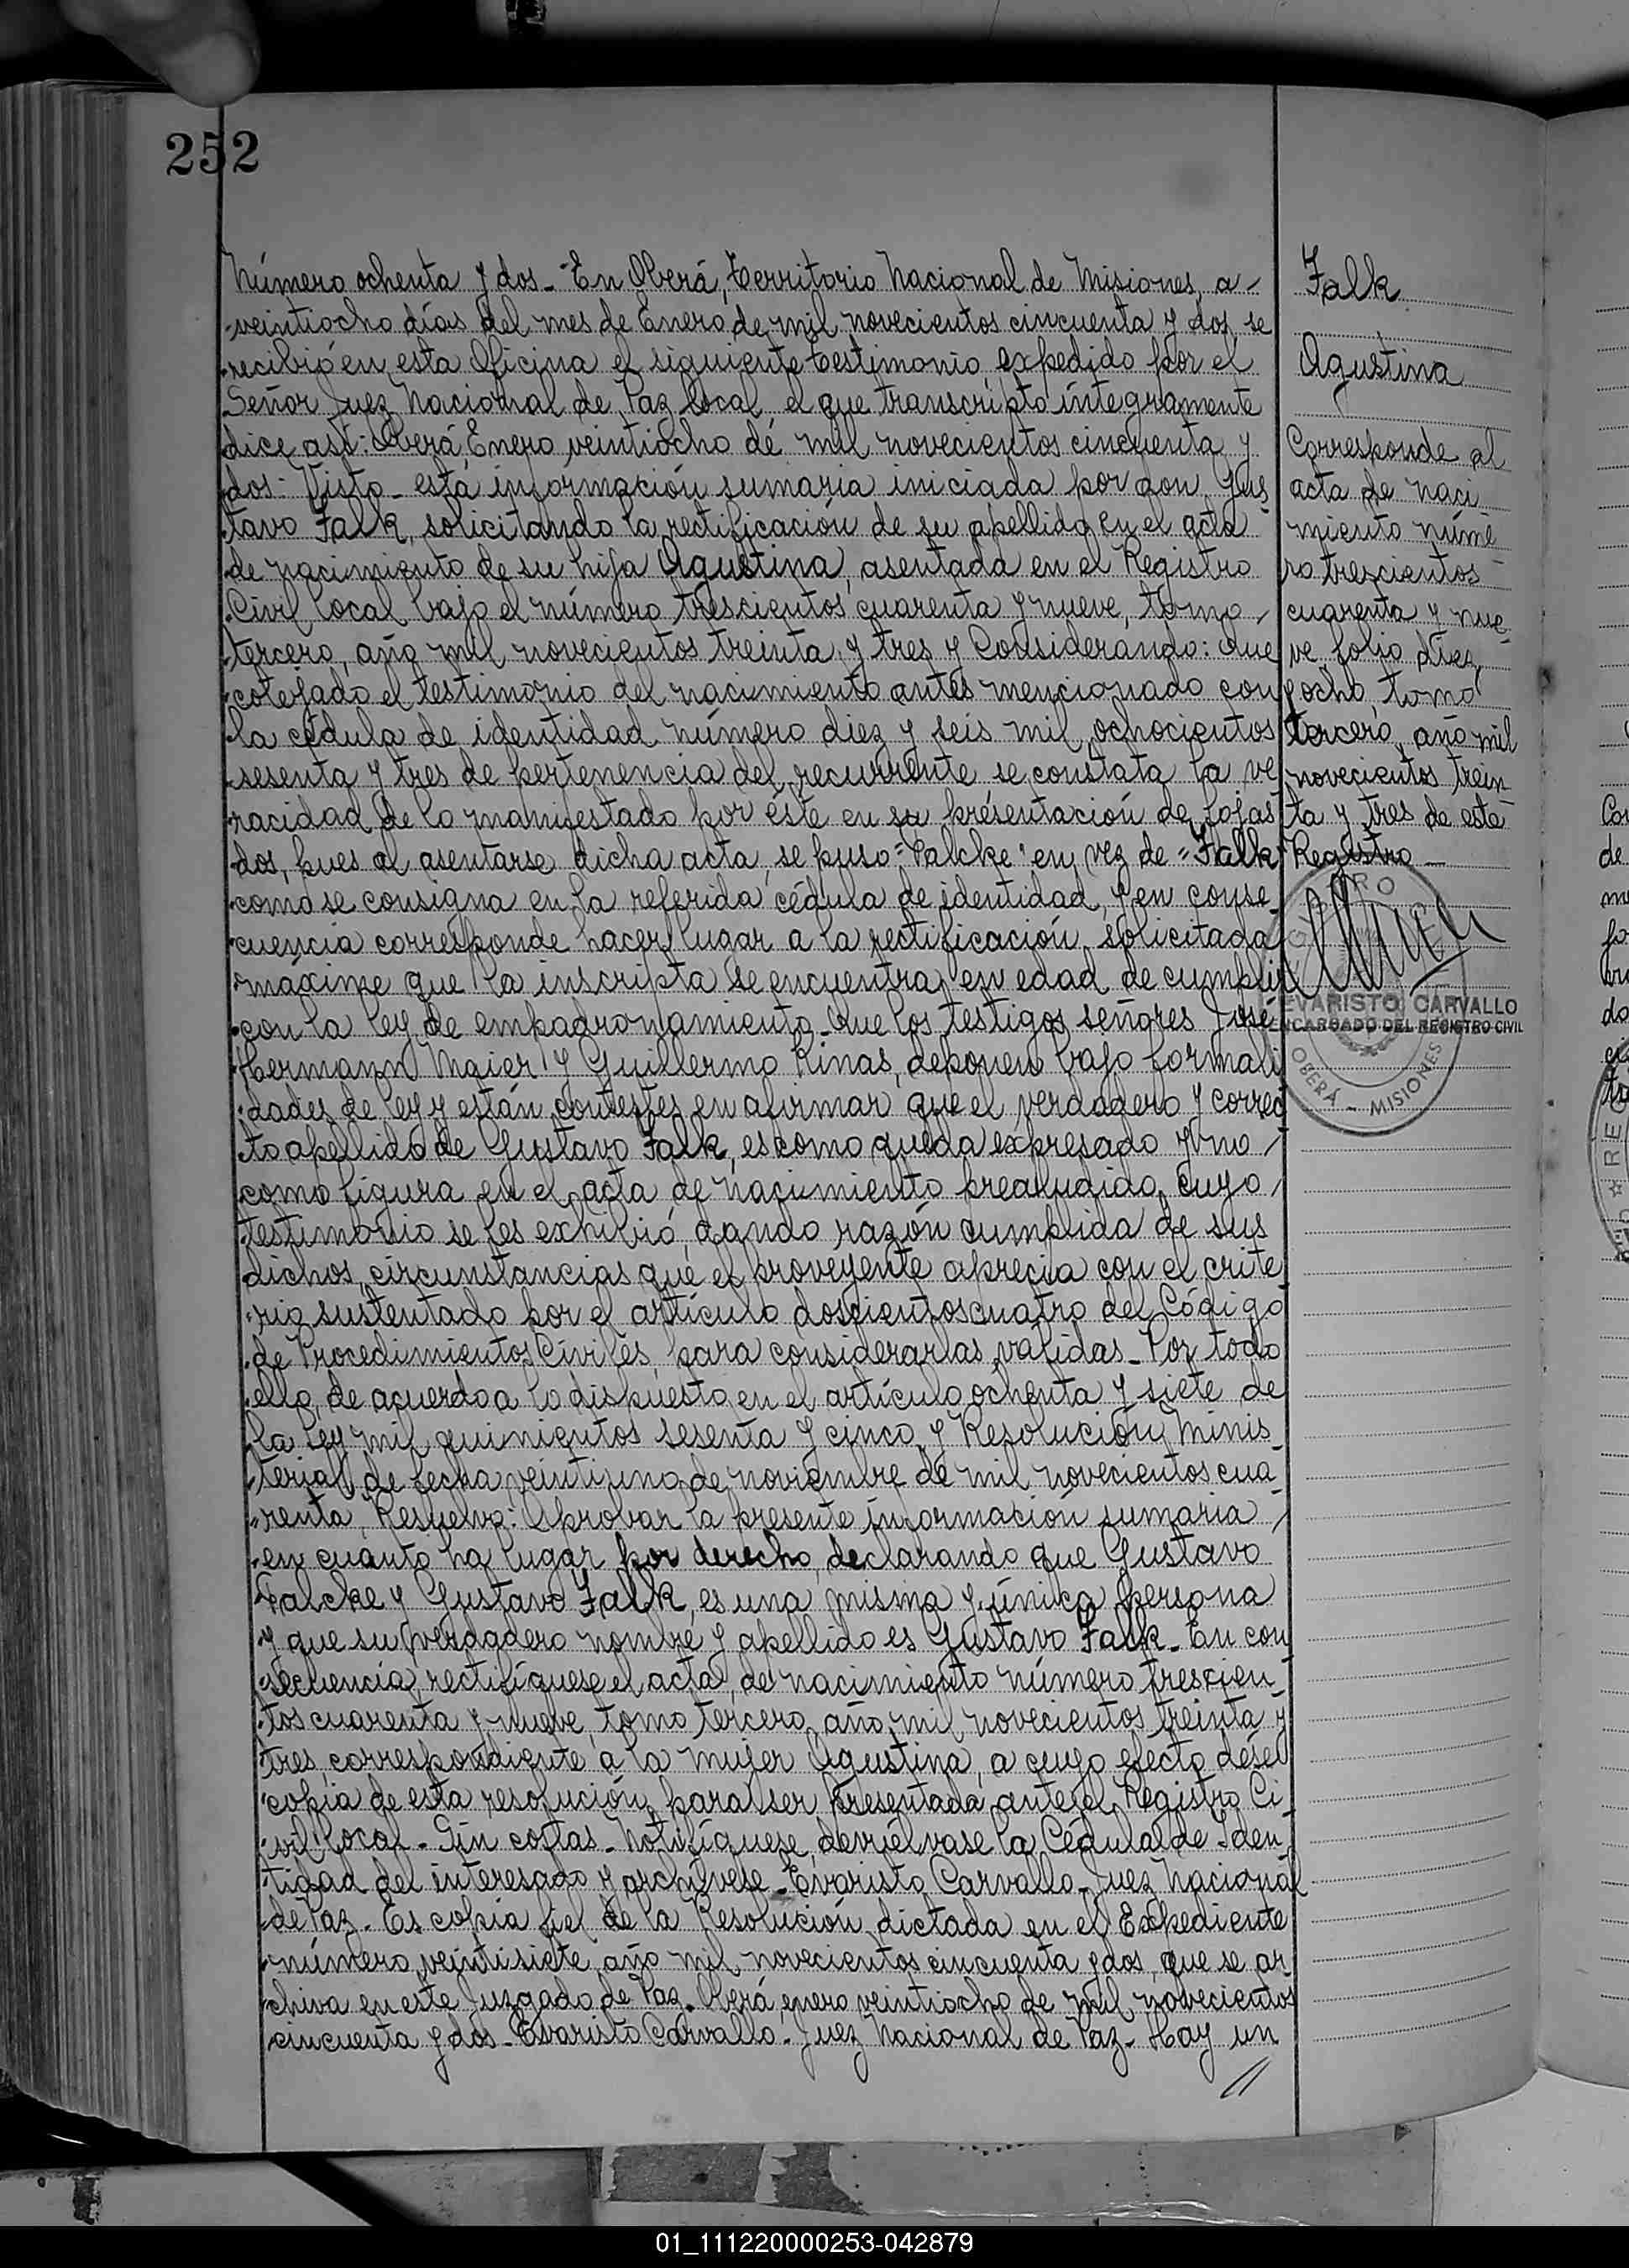 252
Número ochenta y dos - En Oberá, Territorio Nacional de Misiones, a
veintiocho días del mes de Enero de mil novecientos cincuenta y dos se
recibió en esta Oficina el siguiente testimonio expedido por el
Señor Juez Nacional de Paz local el que transcripto íntegramente
dice así: Oberá, Enero veintiocho de mil novecientos cincuenta y
dos: Visto - esta información sumaria iniciada por don Gus
tavo Falk, solicitando la rectificación de su apellido en el acta
de nacimiento de su hija Agustina, asentada en el Registro
Civil local bajo el número trescientos cuarenta y nueve, tomo
tercero, año mil novecientos treinta y tres y Considerando: Que
cotejado el testimonio del nacimiento antes mencionado con
la cédula de identidad número diez y seis mil ochocientos
sesenta y tres de pertenencia del recurrente se constata la ve
racidad de lo manifestado por éste en su presentación de fojas
dos, pues al asentarse dicha acta, se puso "Falcke" en vez de "Falk"
como se consigna en la referida cédula de identidad, y en conse
cuencia corresponde hacer lugar a la rectificación solicitada
máxime que la inscripta se encuentra en edad de cumplir
con la ley de empadronamiento - Que los testigos señores José
Hermann Maier y Guillermo Rinas, deponen bajo formali
dades de ley y están contestes en afirmar que el verdadero y correc
to apellido de Gustavo Falk, es como queda expresado y no
como figura en el acta de nacimiento prealudido, cuyo
testimonio se les exhibió, dando razón cumplida de sus
dichos, circunstancias que el proveyente aprecia con el crite
rio sustentado por el artículo doscientos cuatro del Código
de Procedimientos Civiles, para considerarlas válidas - Por todo
ello, de acuerdo a lo dispuesto en el artículo ochenta y siete de
la ley mil quinientos sesenta y cinco y Resolución Minis
terial de fecha veintiuno de noviembre de mil novecientos cua
renta, Resuelvo: Aprobar la presente información sumaria
en cuanto ha lugar por derecho, declarando que Gustavo
Falcke y Gustavo Falk, es una misma y única persona
y que su verdadero nombre y apellido es Gustavo Falk - En con
secuencia, rectifíquese el acta de nacimiento número trescien
tos cuarenta y nueve, tomo tercero, año mil novecientos treinta y
tres, correspondiente a la mujer Agustina, a cuyo efecto dése
copia de esta resolución para ser presentada ante el Registro Ci
vil local - Sin costas - Notifíquese, devuélvase la Cédula de Iden
tidad del interesado y archívese - Evaristo Carvallo - Juez Nacional
de Paz - Es copia fiel de la Resolución dictada en el Expediente
número veintisiete año mil novecientos cincuenta y dos, que se ar
chiva en este Juzgado de Paz. Oberá, enero veintiocho de mil novecientos
cincuenta y dos - Evaristo Carvallo - Juez Nacional de Paz - Hay un
Falk
Agustina
Corresponde al
acta de naci
miento núme
ro trescientos
cuarenta y nue
ve, folio diez
y ocho tomo
tercero, año mil
novecientos trein
ta y tres de este
Registro -
EVARISTO CARVALLO
ENCARGADO DEL REGISTRO CIVIL
OBERÁ - MISIONES
01_111220000253-042879